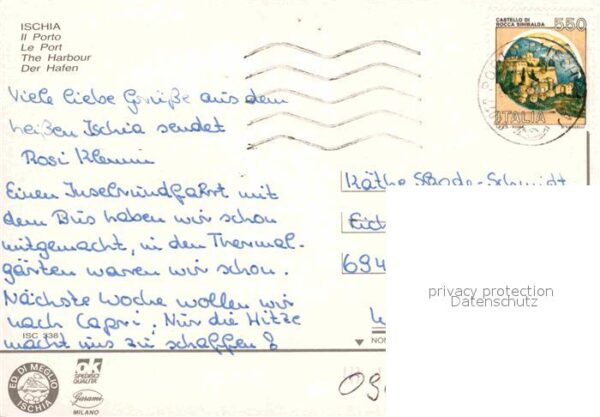 ISCHIA
Il Porto
Le Port
The Harbour
Der Hafen
CASTELLO DI
ROCCA SINIBALDA
550
ITALIA
Viele liebe Grüße aus dem
heißen Ischia sendet
Rosi Klemm
Einen Inselrundfahrt mit
dem Bus haben wir schon
mitgemacht, in den Thermal-
gärten waren wir schon.
Nächste Woche wollen wir
nach Capri. Nur die Hitze
macht uns zu schaffen!
Käthe Schmidt
694
privacy protection
Datenschutz
ISC 338
ED. DI MEGLIO
ISCHIA
SPEDISCI
QUALITA'
Garami
MILANO